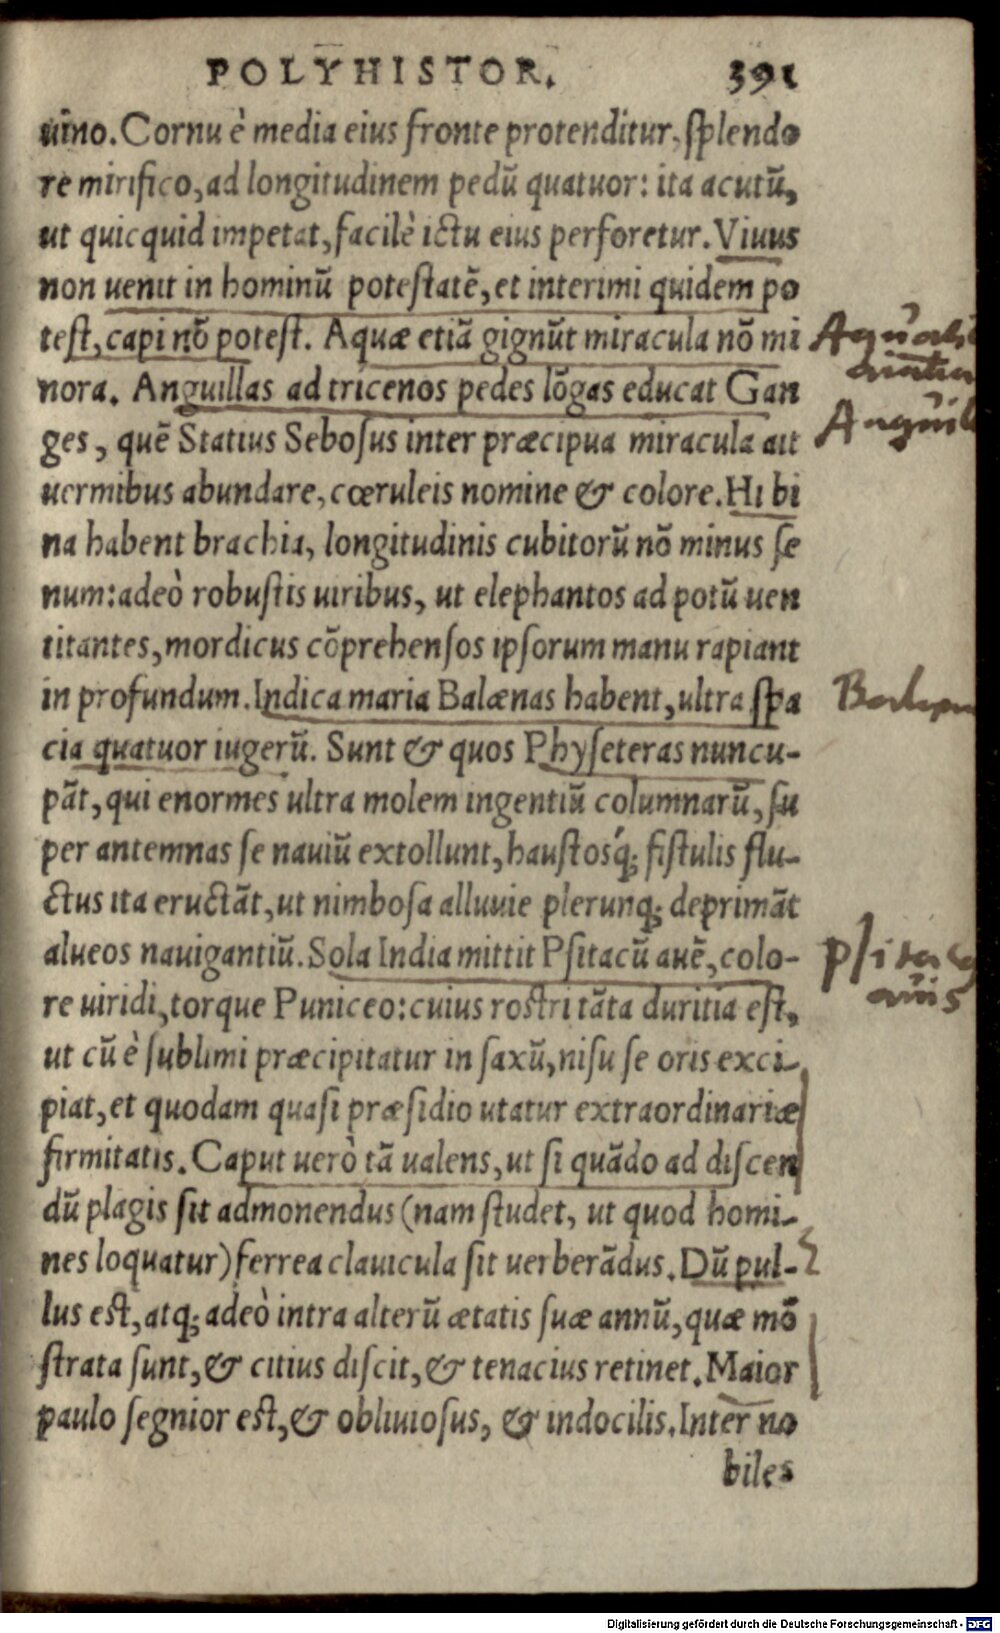 POLYHISTOR. 391
uino. Cornu è media eius fronte protenditur, splendo
re mirifico, ad longitudinem pedũ quatuor: ita acutũ,
ut quicquid impetat, facilè ictu eius perforetur. Viuus
non uenit in hominũ potestatẽ, et interimi quidem po
test, capi nõ potest. Aquæ etiã gignũt miracula nõ mi
nora. Anguillas ad tricenos pedes lõgas educat Gan
ges, quẽ Statius Sebosus inter præcipua miracula ait
uermibus abundare, cœruleis nomine & colore. Hi bi
na habent brachia, longitudinis cubitorũ nõ minus se
num: adeò robustis uiribus, ut elephantos ad potũ uen
titantes, mordicus cõprehensos ipsorum manu rapiant
in profundum. Indica maria Balænas habent, ultra spa
cia quatuor iugerũ. Sunt & quos Physeteras nuncu-
pãt, qui enormes ultra molem ingentiũ columnarũ, su
per antemnas se nauiũ extollunt, haustosq́; fistulis flu-
ctus ita eructãt, ut nimbosa alluuie plerunq; deprimãt
alueos nauigantiũ. Sola India mittit Psitacũ auẽ, colo-
re uiridi, torque Puniceo: cuius rostri tãta duritia est,
ut cũ è sublimi præcipitatur in saxũ, nisu se oris exci-
piat, et quodam quasi præsidio utatur extraordinariæ
firmitatis. Caput uerò tã ualens, ut si quãdo ad discen
dũ plagis sit admonendus (nam studet, ut quod homi-
nes loquatur) ferrea clauicula sit uerberãdus. Dũ pul-
lus est, atq; adeò intra alterũ ætatis suæ annũ, quæ mõ
strata sunt, & citius discit, & tenacius retinet. Maior
paulo segnior est, & obliuiosus, & indocilis. Inter no
biles
Psitacq
auis
Digitalisierung gefördert durch die Deutsche Forschungsgemeinschaft - DFG